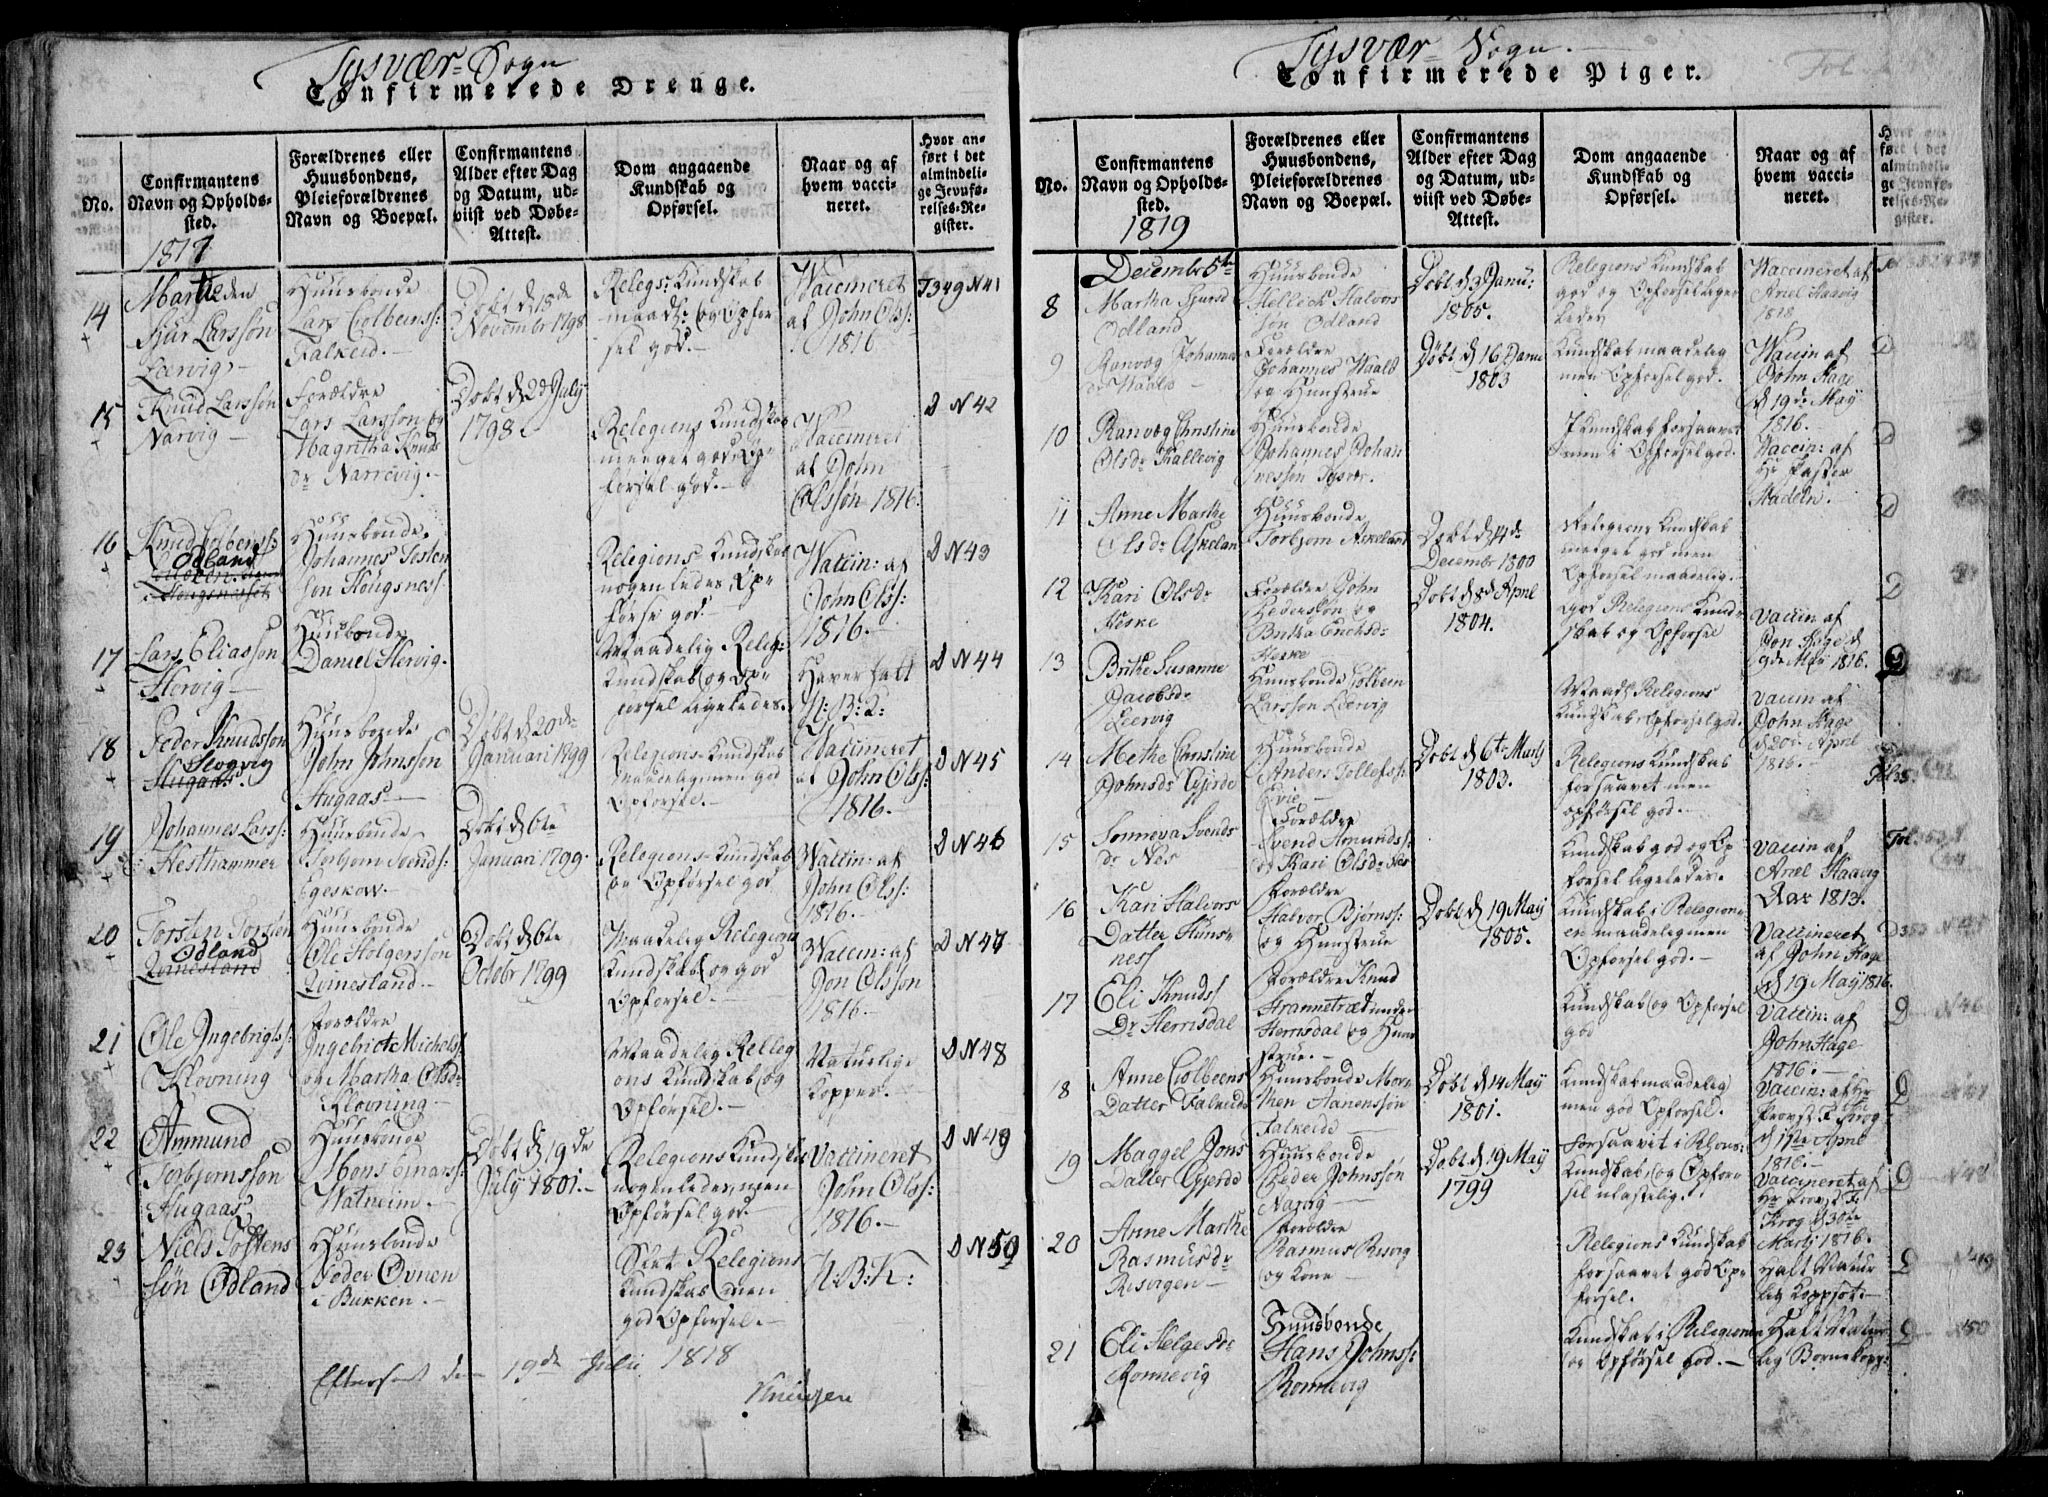 Tysvær Sogn
Confirmerede Drenge.
No.
Confirmantens
Navn og Opholds-
sted.
Forældrenes eller
Huusbondens,
Pleieforældrenes
Navn og Boepæl.
Confirmantens
Alder efter Dag
og Datum, ud-
viist ved Døbe-
Attest.
Dom angaaende
Kundskab og
Opførsel.
Naar og af
hvem vacci-
neret.
Hvor an-
ført i det
almindeli-
ge Jevnfø-
relses-Re-
gister.
14
Sjur Larssøn
Leervig
Huusbonde
Lars Colbeinss:
Falkeid.
Døbt d. 18de
Novembr 1798
Relegs: Kundskab
sel god.
Vaccineret
af John Olss:
1816
F 349 N 41
15
Knud Larssøn
Narvig
Forældre
Lars Larssøn og
Magretha Knuds
Dr Narrevig.
Døbt d. 2d July
1798.
Relegions Kundskab
meeget god, Op-
førsel god.
Vaccineret
af John
Olssøn 1816.
D N 42
16
Knud Colbenss:
Odland
Huusbonde
Johannes Testen
søn Hougsness
Relegions Kundskab
nogenledes, Op-
førse god.
Vaccin: af
John Olss:
1816.
D N 43
17
Lars Eliassøn
Hervig
Huusbonde
Daniel Hervig.
Maadelig Releg:
Kundskab og Op-
førsel ligeledes.
Haver haft
N: B: K:
D N 44
18
Peder Knudssøn
Slogvig
Hugaas.
Huusbonde
John Johnssøn
Hugaas
Døbt d. 20de
Januari 1799
Relegions Kundskab
maadelig men god
Opførsel.
Vaccineret
af John Olss:
1816.
D N 45
19
Johannes Larss:
Hesthammer
Huusbonde
Torbjorn Svends:
Egeskow.
Døbt d. 6te
Januari 1799.
Relegions Kundskab
og Opførsel god
Vaccin: af
John Olss:
1816.
D N 46
20
Torsten Torssøn
Odland
Qvinesland
Huusbonde
Ole Holgerssøn
Qvinesland.
Døbt d. 6te
Octobr 1799
Maadelig Relegions
Kundskab og god
Opførsel.
Vaccin: af
Jon Olssøn
1816.
D N 47
21
Ole Ingebrigtss:
Kløvning
Forældre
Ingebrict Michelss:
og Martha Olsdr
Kløvning
Maadelig Relleg
ons Kundskab og
Opførsel.
Naturlige
Kopper.
D N 48
22
Ammund
Torbjornssøn
Hugaas
Huusbonde
Mons Einarss:
Watneim.
Døbt d. 19de
July 1801.
Relegions Kundskab
nogenledes, men
Opførsel god.
Vaccineret
John Olss:
1816.
D N 49
23
Niels Tostens
søn Odland
Huusbonde
Peder Ovnen
i Bukken.
Slet Relegions
Kundskab men
god Opførsel.
N: B: K:
D N 50
Efterseet den 19de Julii 1818
Tysvær Sogn.
Confirmerede Piger.
Fol
No.
Confirmantens
Navn og Opholds-
sted.
1819
Forældrenes eller
Huusbondens,
Pleieforældrenes
Navn og Boepæl.
Confirmantens
Alder efter Dag
og Datum, ud-
viist ved Døbe-
Attest.
Dom angaaende
Kundskab og
Opførsel.
Naar og af
hvem vacci-
neret.
Decembr 5te
8
Martha Sjursd
Odland
Huusbonde
Hellick Halvors
søn Odland
Døbt d. 3 Janu:
1805.
Relegions Kundskab
god og Opførsel lige-
ledes
Vaccineret af
Ariel Haavig
1818
9
Ranvæg Johannes
Forældre
Johannes Waald
og Hunstrue
Døbt d. 16 Janu
1803
Kundskab maadelig
men Opførsel god.
Vaccin af
John Hage
d. 19de May
1816.
10
Ranvæg Christine
Olsdr Kallevig
Huusbonde
Johannes Johan
nessøn Tysvær.
I Kundskab forsaavet
men i Opførsel god.
Vaccin: af
Hr Paster
11
Anne Marthe
Olsdr Askelan
Huusbonde
Torbjom Askeland
Døbt d. 14de
Decembr 1800
Relegions Kundskab
meeget god men
Opførsel maadelig.
12
Kari Olsdr
Heske
Forældre John
Pederssøn og
Britha Ericksdr
Heske
Døbt d. 8d April
1804.
God Relegions Kund-
skab og Opførsel
Vaccin af
Jon Hage d.
9de May 1816.
13
Brithe Susanne
Jacobsdr
Leervig
Huusbonde Colben
Larssøn Leervig
Maadl Relegions
Kundskab, Opførsel god.
Vaccin af
John Hage
d. 20de April
1816.
14
Methe Christine
Johnsdr Gjerde
Huusbonde
Anders Tollefss:
Evie
Døbt d. 6te Marty
1803.
Relegions Kundskab
forsaavet men
opførsel god.
15
Sonneva Svends
Dr Nes
Forældre
Svend Amundss:
og Kari Olsdr Nes
Kundskab god og Op-
førsel ligeledes.
Vaccin af
Ariel Haavig
Aar 1813.
16
Kari Halvors
Datter Huns-
ness
Forældre
Halvor Bjørnss:
og Hunstrue
Døbt d. 19 May
1805.
Kundskab i Relegion-
en maadelig men
Opførsel god.
Vaccineret
af John Hage
d. 19 May 1816.
17
Eli Knuds
Dr Herrisdal
Forældre Knud
Herrisdal og Hun-
strue.
Kundskab og Opførsel
god
Vaccin: af
John Hage
1816.
18
Anne Colbeens
Datter Falkeide
Huusbonde Mor-
then Hanenssøn
Falkeide
Døbt d. 14 May
1801.
Kundskab maadelig
men god Opførsel.
Vaccin: af Hr
Provst F. Krog
d. 19te April
1816.
19
Maggel Jons
Datter Gjerde
Huusbonde
Peder Johnssøn
Narvig
Døbt d. 19 May
1799
Forsaavet i Rlons:
Kundskab, og Opfør-
sel ulastelig.
Vaccineret af
Hr Provst F.
Krog d. 30te
Marty 1816.
20
Anne Marthe
Rasmusdr
Resvigen
Forældre
Rasmus Resvig
og Kone
Relegions Kundskab
forsaavet god Op-
førsel.
Haft Natur
lig Koppsot
21
Eli Helgesdr
Rønnevig
Huusbonde
Hans Johnss:
Rønnevig
Kundskab i Relegionen
og Opførsel god.
Haft Natur
lig Bornekopp: